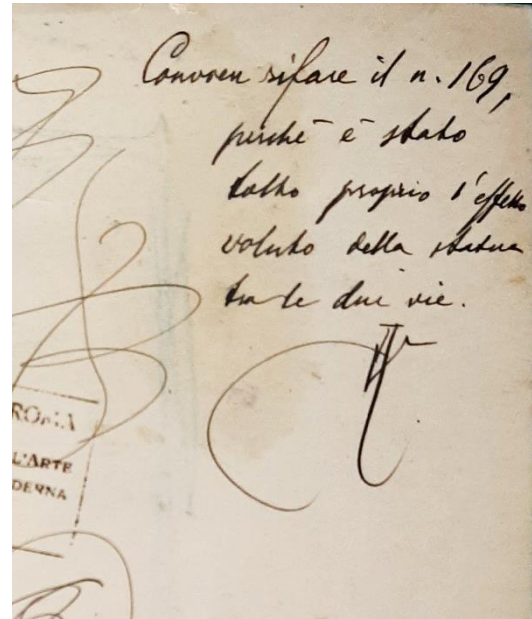 Convien rifare il n. 169,
perchè è stato
tolto proprio l'effetto
voluto della statua
tra le due vie.
ROMA
L'ARTE
DERNA